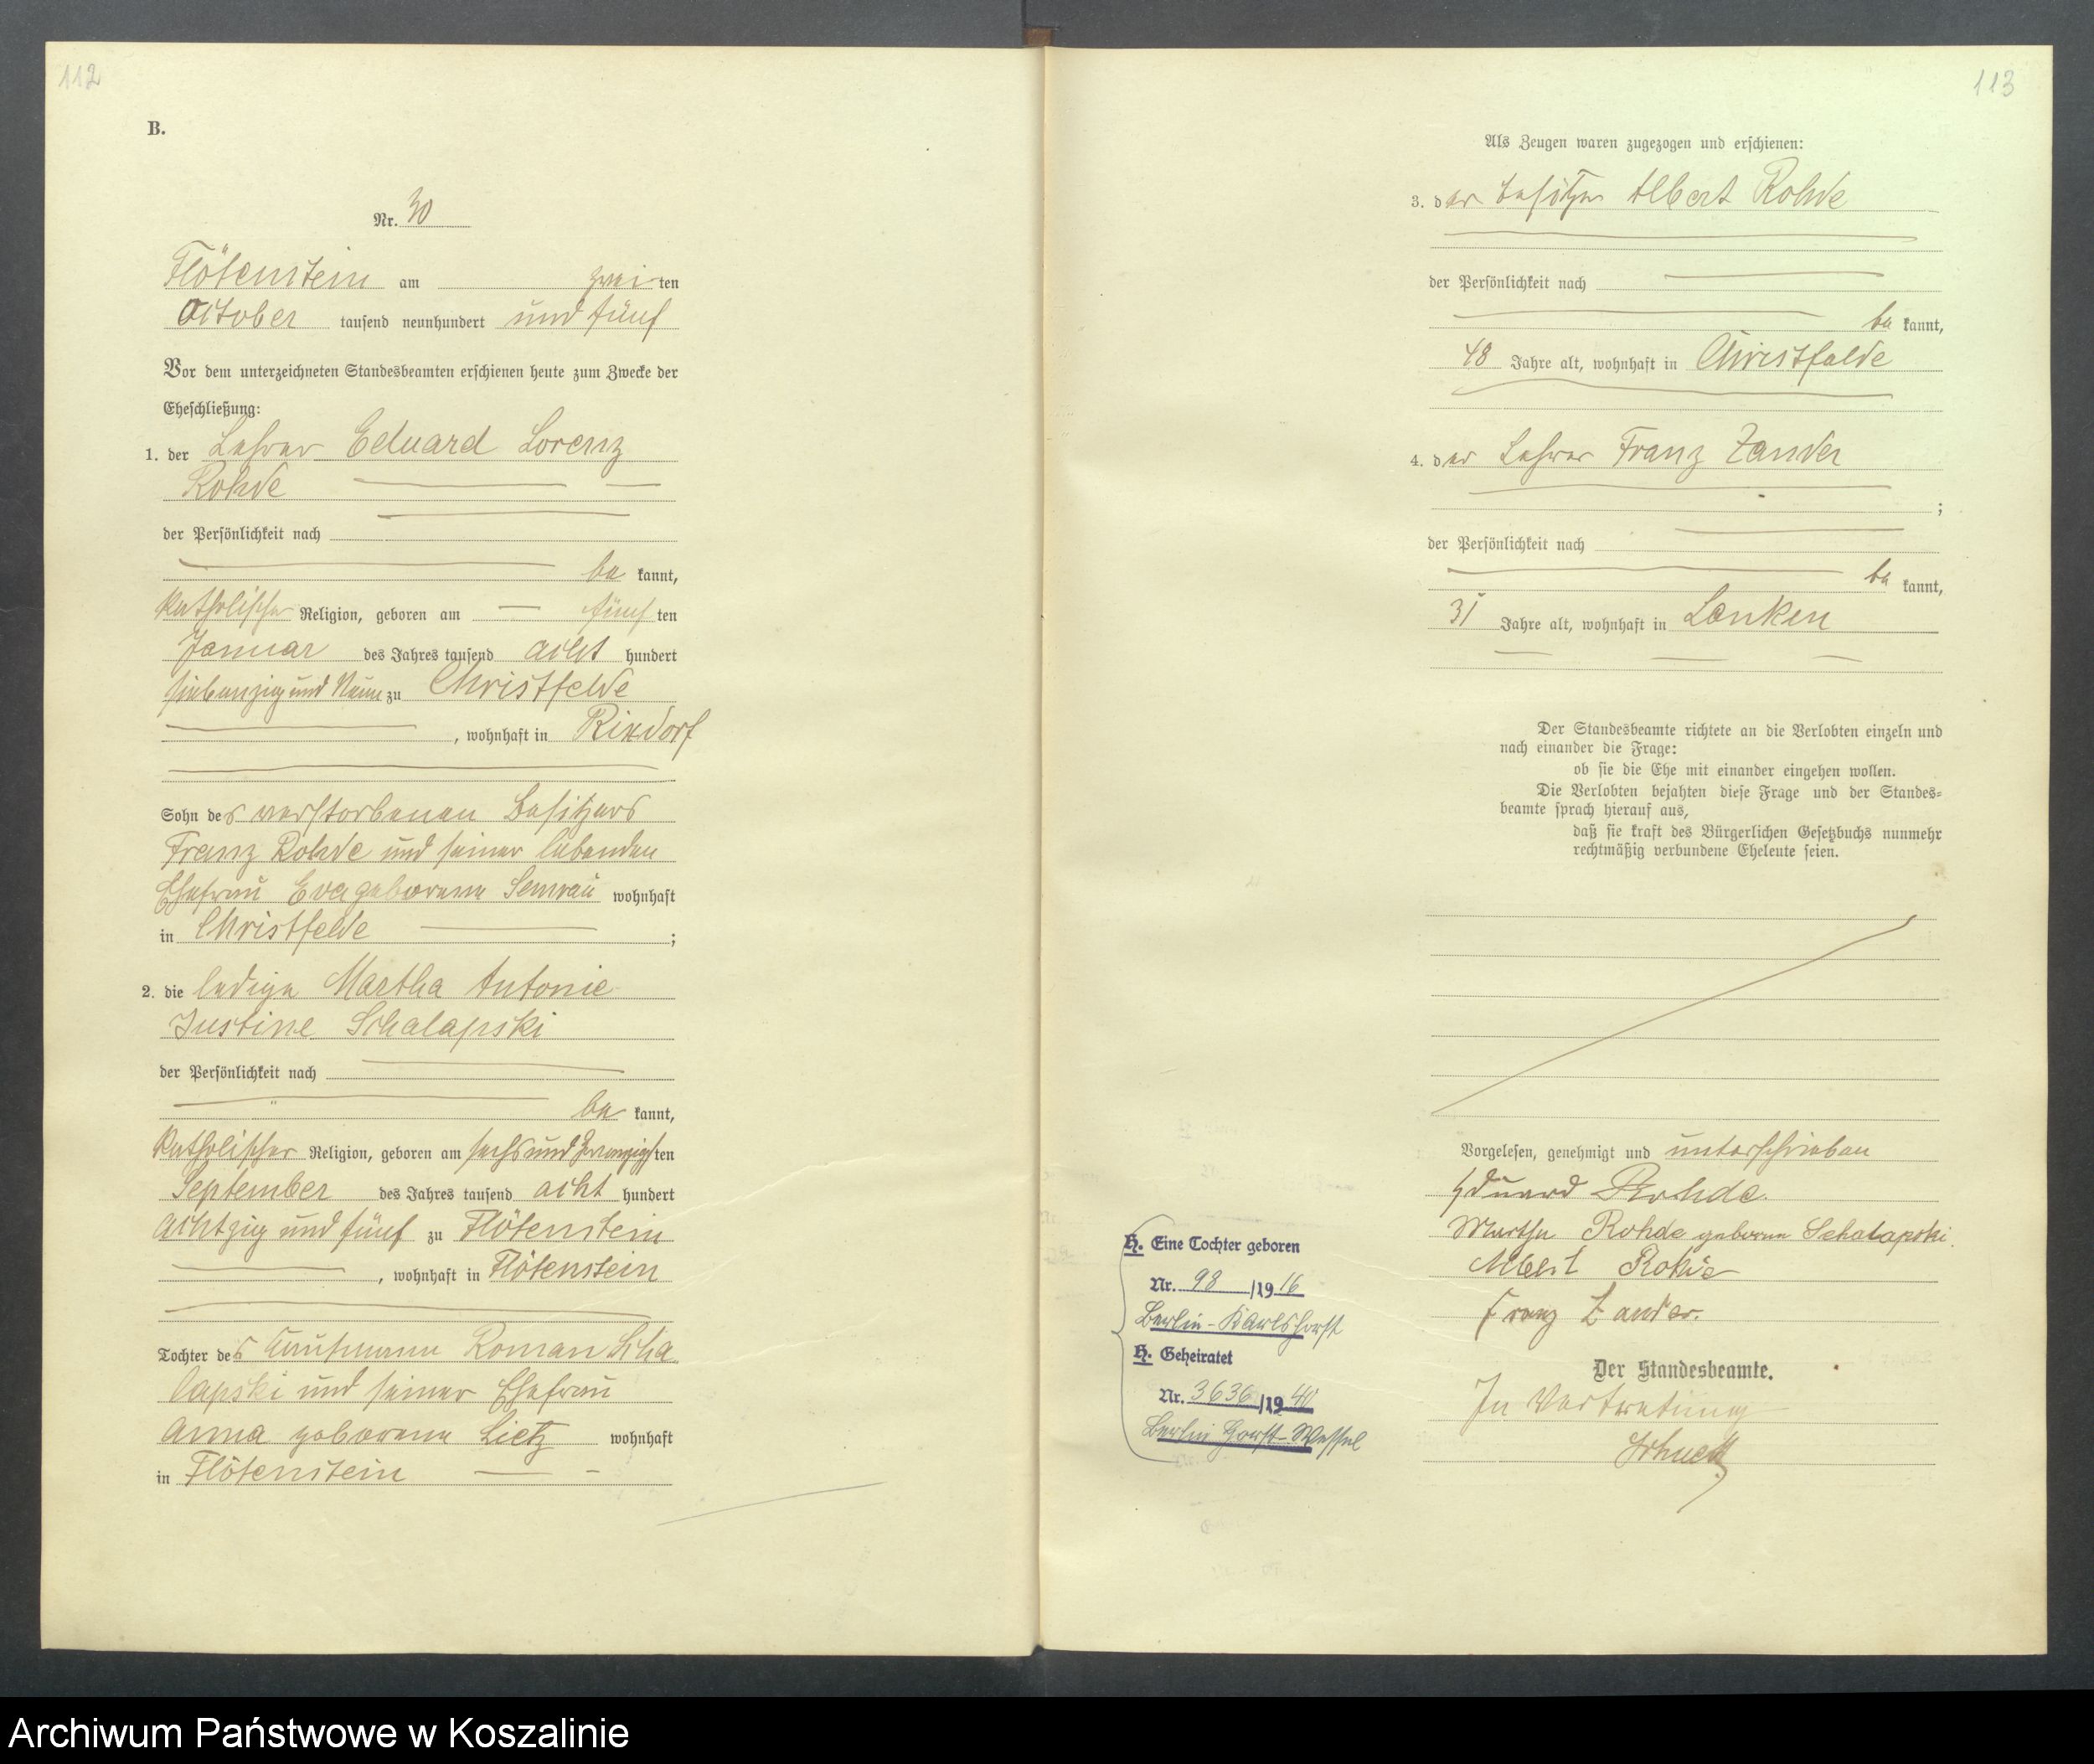 112
B.
Nr. 30
Flötenstein am zwei ten
October tausend neunhundert und fünf
Vor dem unterzeichneten Standesbeamten erschienen heute zum Zwecke der
Eheschließung:
1. der Lehrer Eduard Lorenz
Rohde
der Persönlichkeit nach
be kannt,
katholischer Religion, geboren am fünf ten
Januar des Jahres tausend acht hundert
siebenzig und Neun zu Christfelde
, wohnhaft in Rixdorf
Sohn des verstorbenen Besitzers
Franz Rohde und seiner lebenden
Ehefrau Eva geborene Semrau wohnhaft
in Christfelde ;
2. die ledige Martha Antonie
Justine Schalapski
der Persönlichkeit nach
be kannt,
katholischer Religion, geboren am sechs und zwanzigs ten
September des Jahres tausend acht hundert
achtzig und fünf zu Flötenstein
, wohnhaft in Flötenstein
Tochter des Kaufmann Roman Scha
lapski und seiner Ehefrau
Anna geborene Lietz wohnhaft
in Flötenstein
113
Als Zeugen waren zugezogen und erschienen:
3. der Besitzer Albert Rohde
der Persönlichkeit nach
be kannt,
48 Jahre alt, wohnhaft in Christfelde
4. der Lehrer Franz Zander
;
der Persönlichkeit nach
be kannt,
31 Jahre alt, wohnhaft in Lanken
Der Standesbeamte richtete an die Verlobten einzeln und
nach einander die Frage:
ob sie die Ehe mit einander eingehen wollen.
Die Verlobten bejahten diese Frage und der Standes-
beamte sprach hierauf aus,
daß sie kraft des Bürgerlichen Gesetzbuchs nunmehr
rechtmäßig verbundene Eheleute seien.
Vorgelesen, genehmigt und unterschrieben
Eduard Rohde.
Martha Rohde geborene Schalapski.
Albert Rohde
Franz Zander.
Der Standesbeamte.
In Vertretung
H. Eine Tochter geboren
Nr. 98 /19 16
Berlin-Karlshorst
H. Geheiratet
Nr. 3636 /19 40
Berlin Horst-Wessel
Archiwum Państwowe w Koszalinie